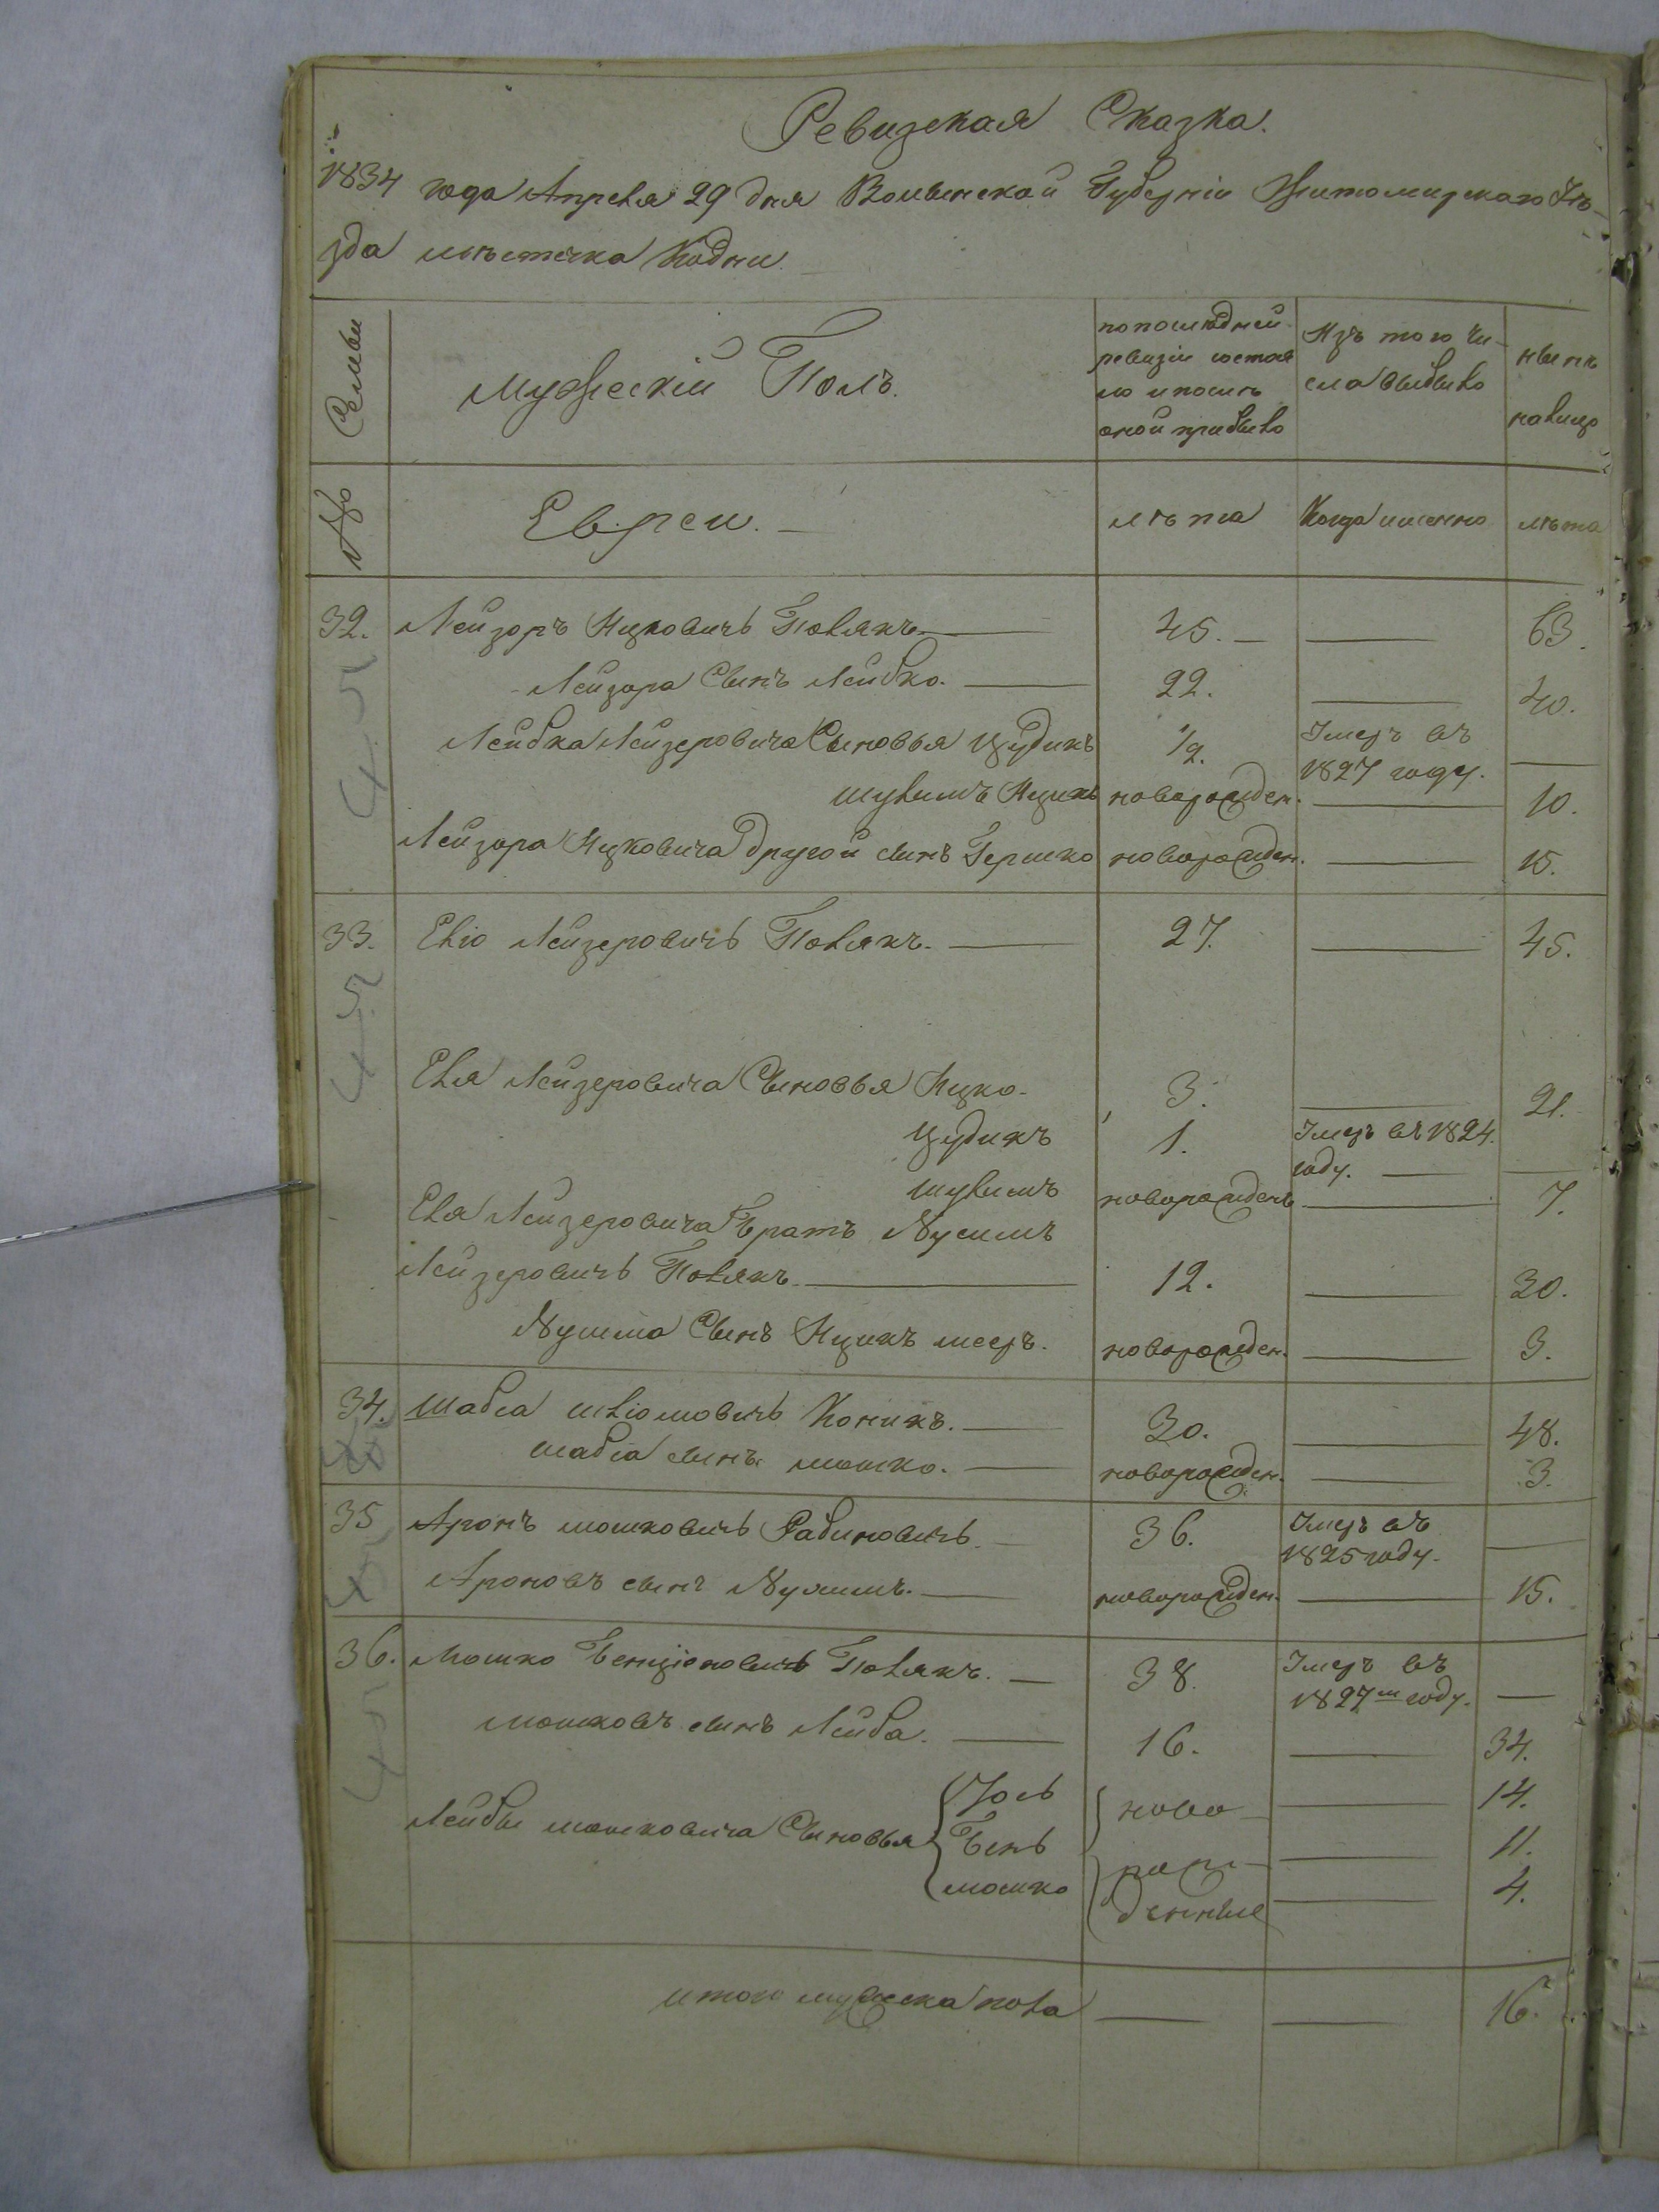 Ревизская Сказка.
1834 года Апреля 29 дня Волынской Губерніи Житомирскаго Уѣ-
зда мѣстечка Кодни
Семьи
Мужескій Полъ.
по послѣдней
ревизіи состоя
ло и послѣ
оной прибыло
Изъ того чи-
сла выбыло
нынѣ
налицо
№
Евреи.
лѣта
Когда именно
лѣта
32. Лейзоръ Ицковичь Полякъ 45. 63.
Лейзора Сынъ Лейбко. 22. 40.
Лейбка Лейзеровича Сыновья Цудикъ 1/2. Умеръ въ
1827 году.
Шулимъ Ицикъ новорожден. 10.
Лейзора Ицковича другой сынъ Гершко новорожден. 15.
33. Еліо Лейзеровичь Полякъ. 27. 45.
Еля Лейзеровича Сыновья Ицко 3. 21.
Цудикъ 1. Умеръ въ 1824.
году.
Шулимъ новорожденъ 7.
Еля Лейзеровича Братъ Нусимъ
Лейзеровичь Полякъ 12. 30.
Нусима Сынъ Ицикъ мееръ. новорожден. 3.
34. Шабса Шліомовичь Коникъ. 30. 48.
Шабса сынъ мошко. новорожден. 3.
35 Аронъ мошковичь Рабиновичь 36. Умеръ въ
1825 году.
Ароновъ сынъ Нухимъ. новорожден. 15.
36. Мошко Бенціоновичь Полякъ. 38. Умеръ въ
1827м году.
мошковъ сынъ Лейба. 16. 34.
Лейбы мошковича Сыновья Іось ново 14.
Бень рож 11.
мошко денные 4.
итого мужеска пола 16.